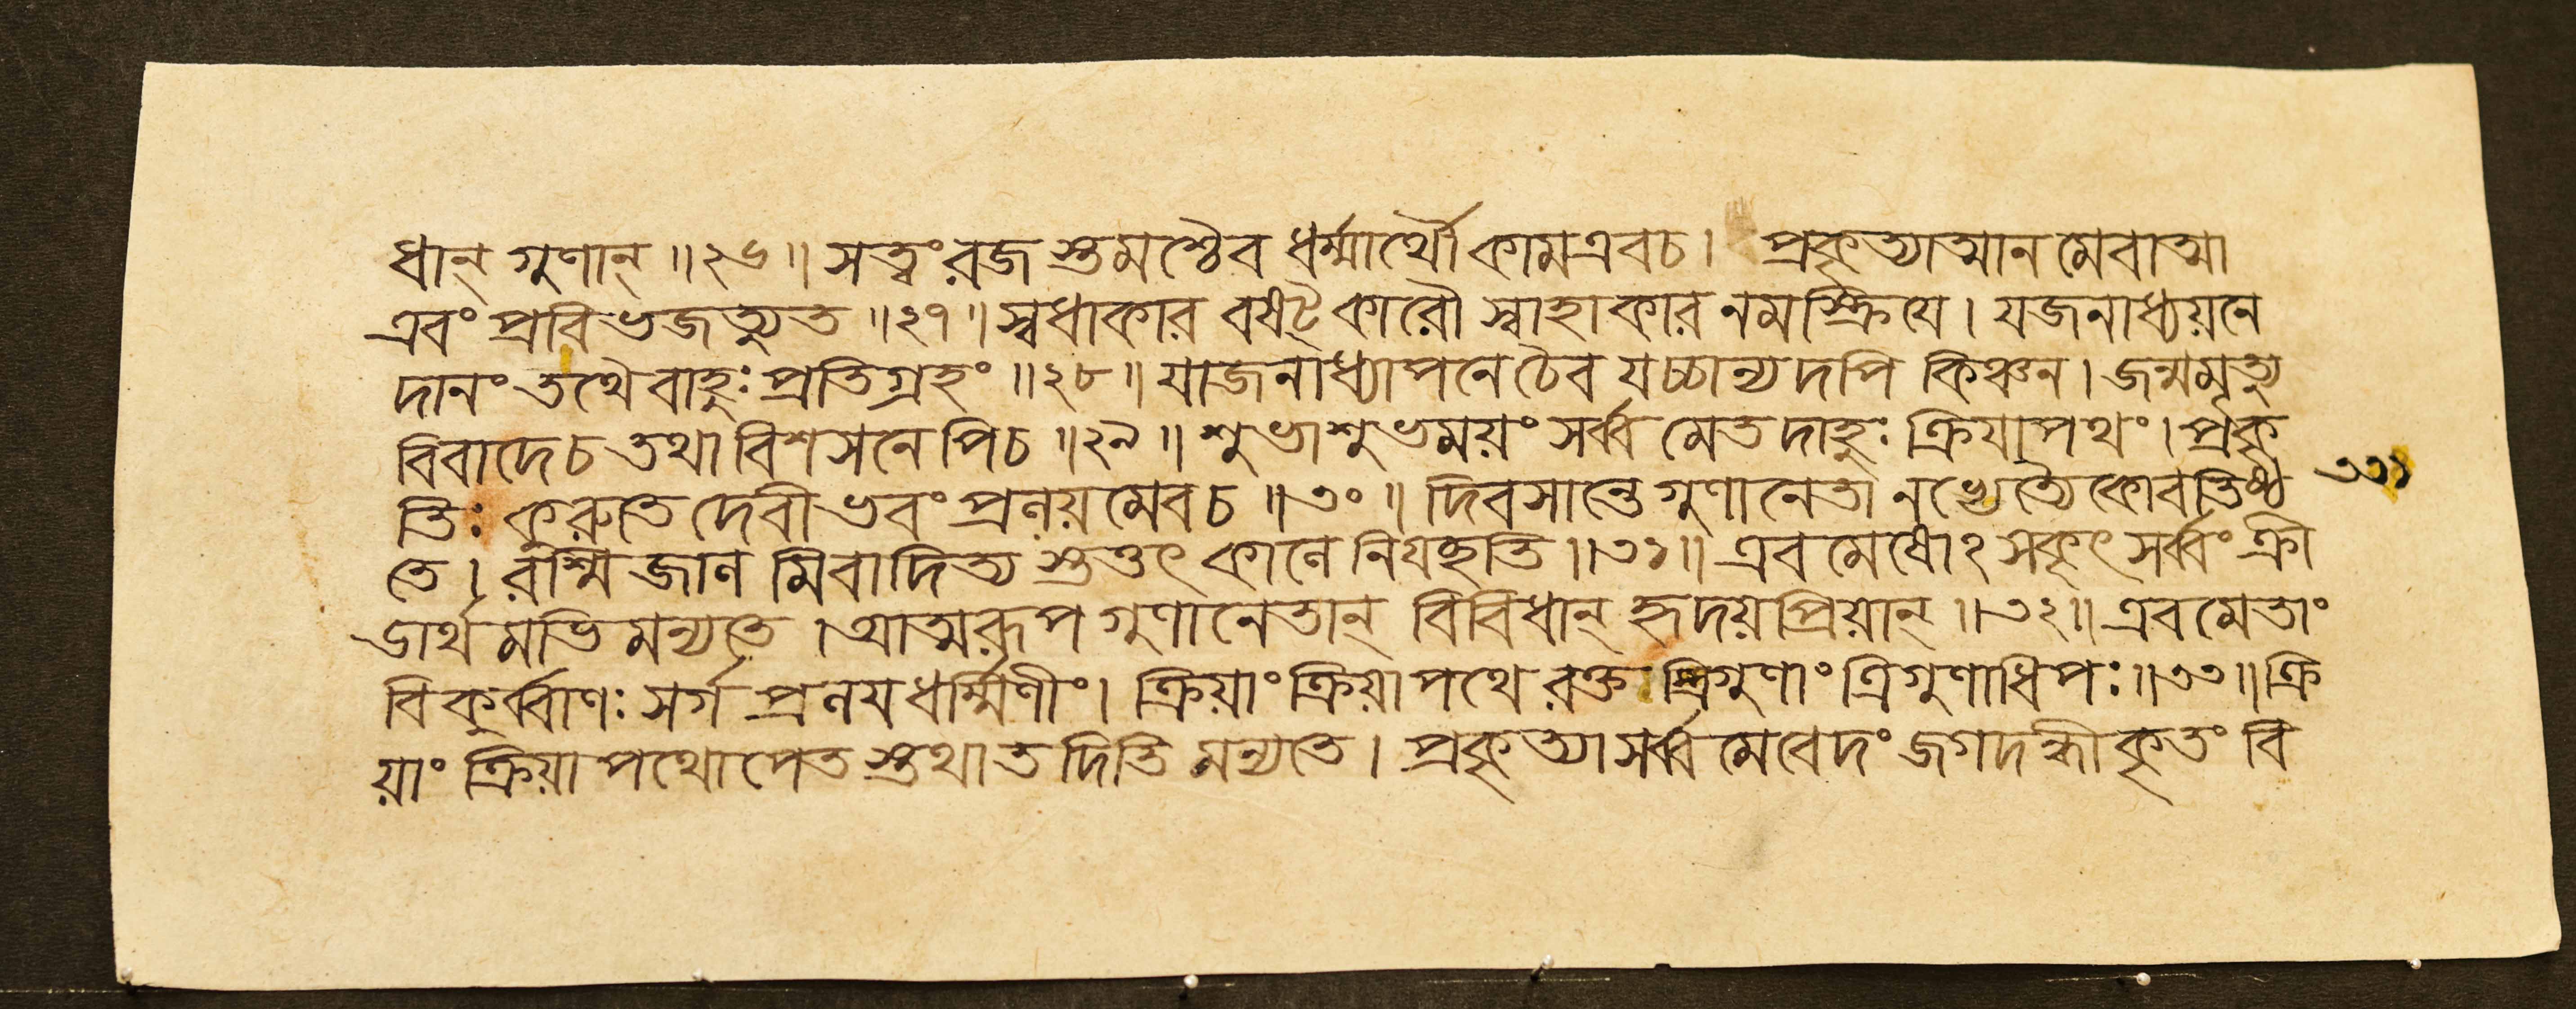 ধান্ গুণান্ ॥২৬॥ সত্ত্বং রজ স্তমশ্চৈব ধর্ম্মার্থৌ কামএবচ। প্রকৃত্যাত্মান মেবাত্মা
এবং প্রবিভজত্যুত ॥২৭॥ স্বধাকার বষট্কারৌ স্বাহাকার নমস্ক্রিযে। যজনাধ্যয়নে
দানং তথৈবাহুঃ প্রতিগ্রহং ॥২৮॥ যাজনাধ্যাপনে চৈব যচ্চান্য দপি কিঞ্চন। জন্মমৃত্যু
বিবাদেচ তথা বিশসনে পিচ ॥২৯॥ শুভাশুভময়ং সর্ব্ব মেত দাহুঃ ক্রিযাপথং। প্রকৃ
তিঃ কুরুতে দেবী ভবং প্রলয়মেবচ ॥৩০॥ দিবসান্তে গুণানেতা নভ্যেত্যৈকোবতিষ্ঠ
তে। রশ্মি জাল মিবাদিত্য স্তত্তৎ কালে নিযচ্ছতি ॥৩১॥ এব মেষোঽ সকৃৎ সর্ব্বং ক্রী
ডার্থ মভি মন্যতে। আত্মরূপ গুণানেতান্ বিবিধান্ হৃদয়প্রিয়ান্ ॥৩২॥ এব মেতাং
বিকুর্ব্বাণঃ সর্গ প্রলযধর্ম্মিণীং। ক্রিয়াং ক্রিয়াপথে রক্ত স্ত্রিগুণাং ত্রিগুণাধিপঃ ॥৩৩॥ ক্রি
য়াং ক্রিয়া পথোপেত স্তথা ত দিতি মন্যতে। প্রকৃত্যা সর্ব্ব মেবেদং জগদন্ধীকৃতং বি
৩৩১